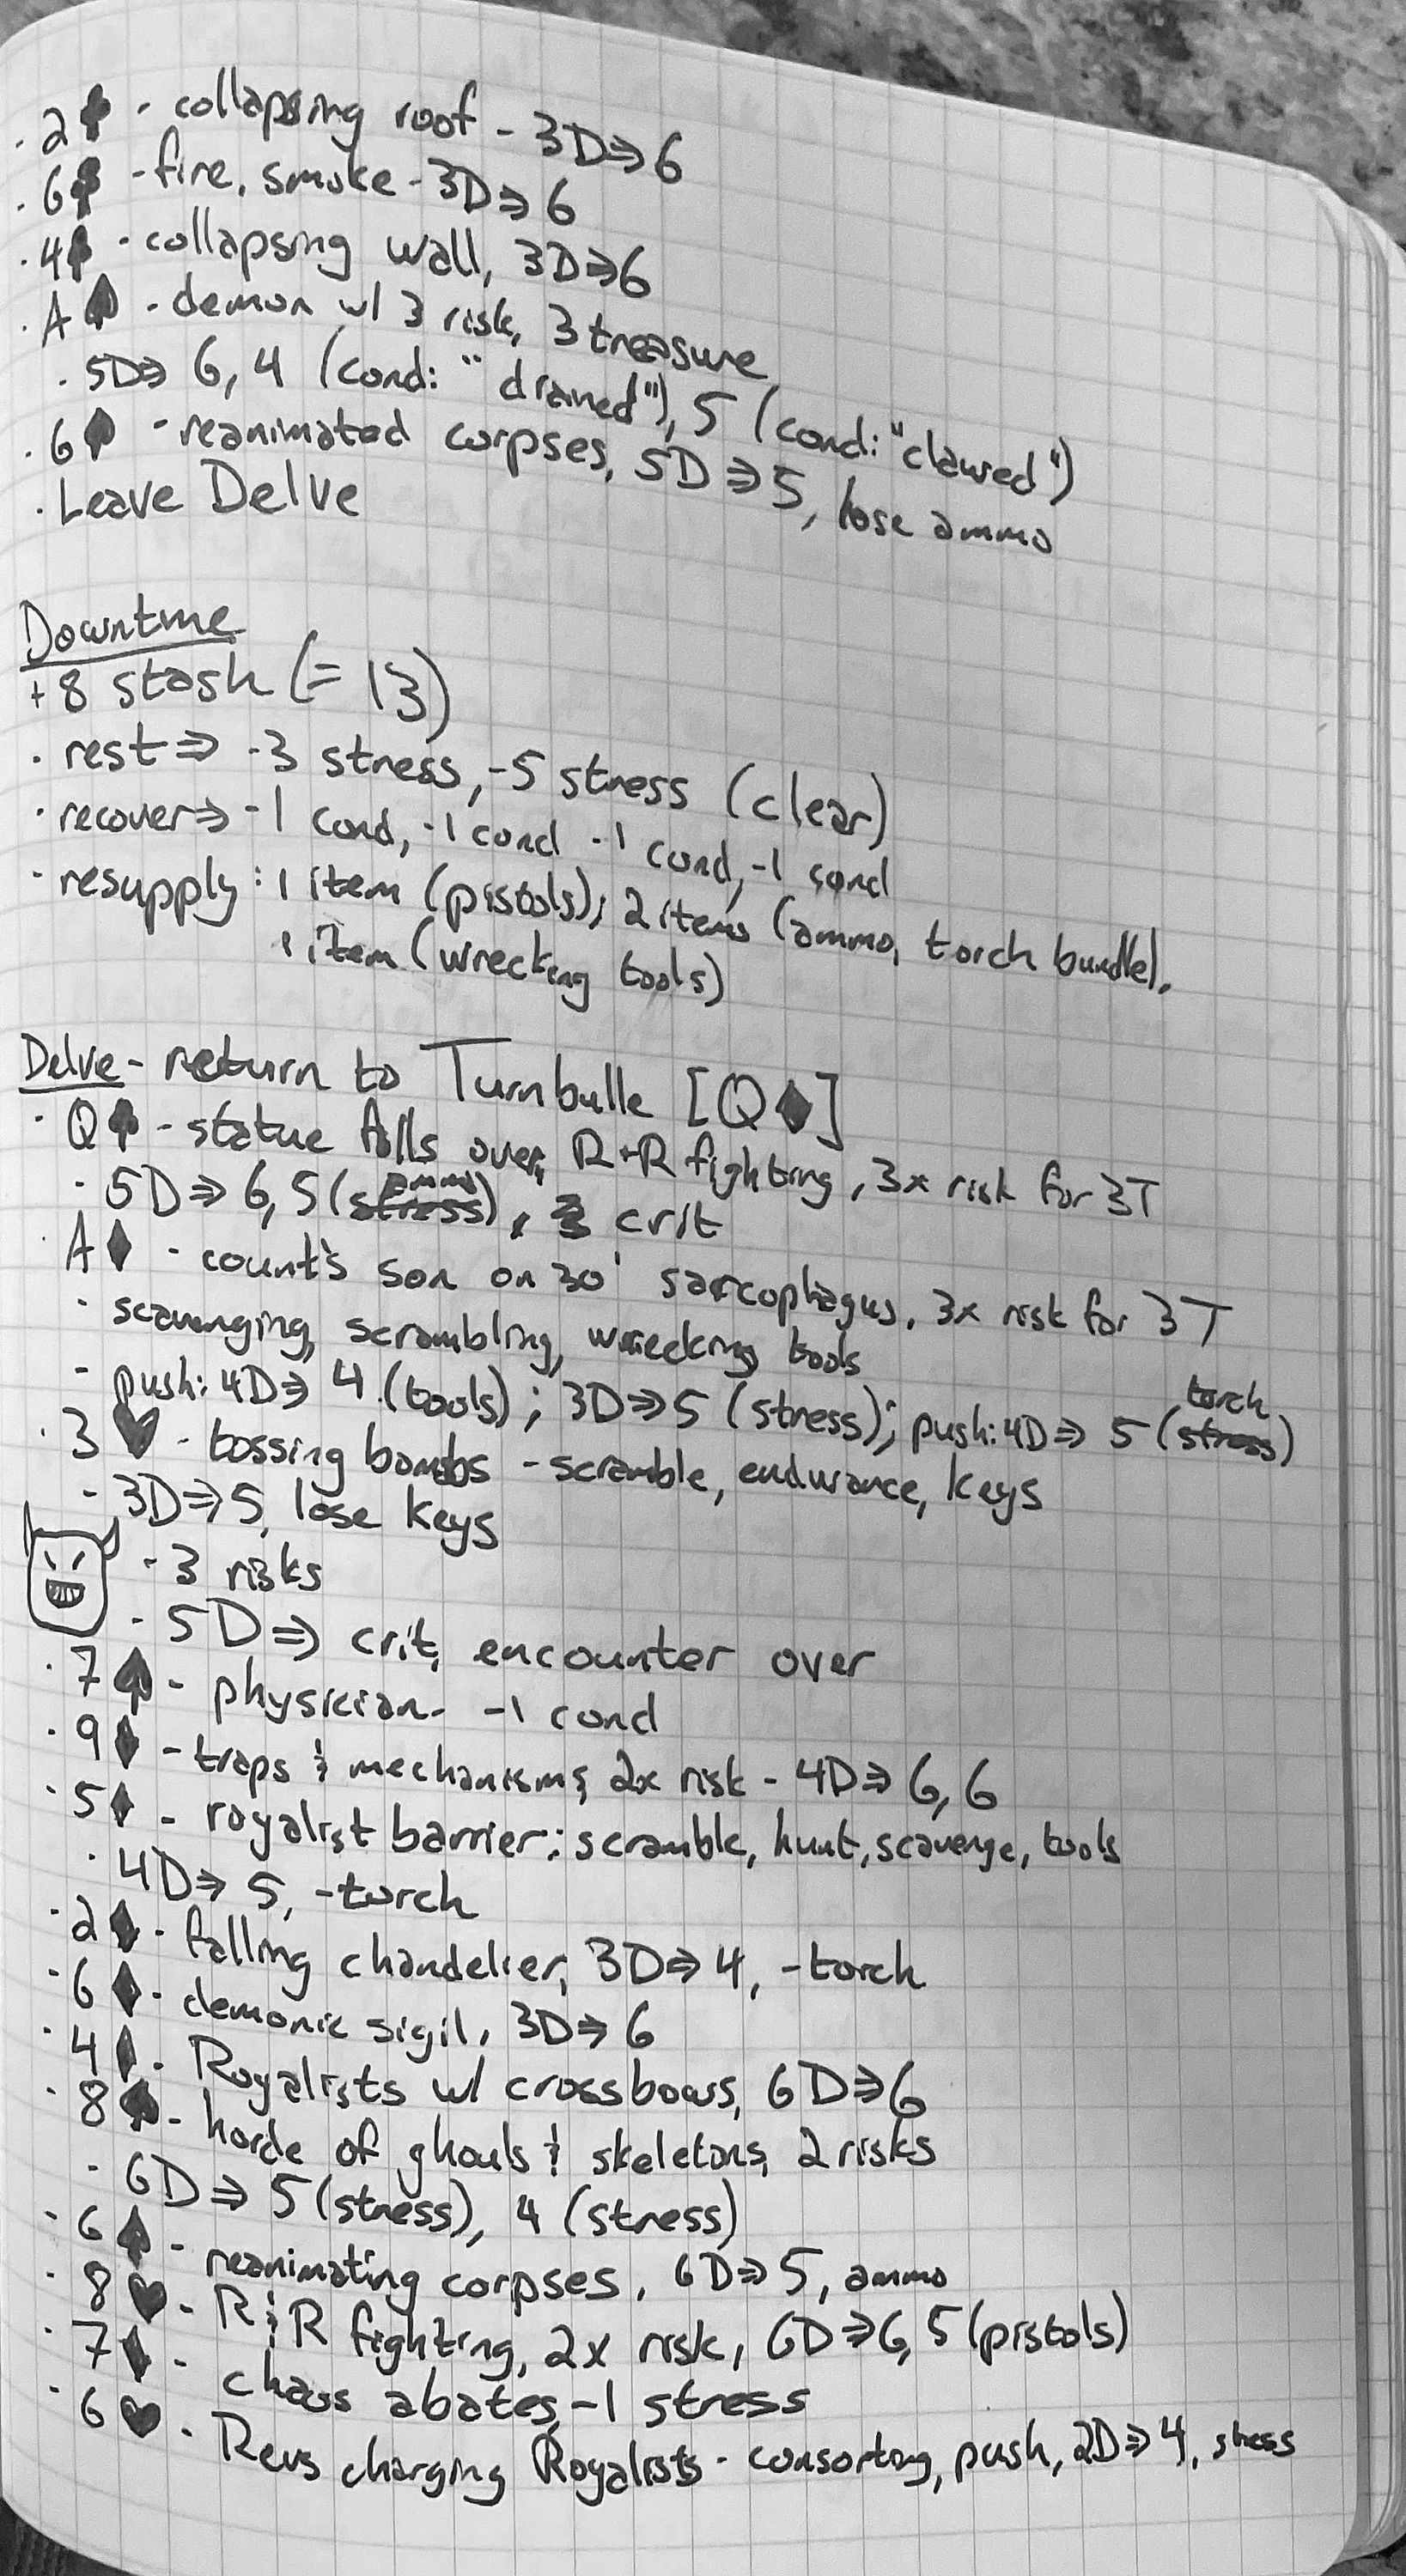 · 2♣ · collapsing roof - 3D⇒6
· 6♣ - fire, smoke - 3D⇒6
· 4♣ · collapsing wall, 3D⇒6
· A♠ · demon w/ 3 risk, 3 treasure
· 5D⇒ 6, 4 (cond: "drained"), 5 (cond: "clawed")
· 6♠ - reanimated corpses, 5D⇒5, lose ammo
· Leave Delve
Downtime
+8 stash (=13)
· rest⇒ -3 stress, -5 stress (clear)
· recover⇒ -1 cond, -1 cond -1 cond, -1 cond
- resupply: 1 item (pistols); 2 items (ammo, torch bundle),
1 item (wrecking tools)
Delve - return to Turnbulle [Q♦]
· Q♣ - statue falls over, R+R fighting, 3x risk for 3T
· 5D⇒ 6, 5 (ammo), crit
· A♦ - count's son on 30' sarcophagus, 3x risk for 3T
- scavenging, scrambling, wrecking tools
- push: 4D⇒ 4 (tools); 3D⇒5 (stress); push: 4D⇒ 5 (torch)
· 3♥ - tossing bombs - scramble, endurance, keys
- 3D⇒5, lose keys
- 3 risks
- 5D⇒ crit, encounter over
· 7♠ - physician - -1 cond
· 9♦ - traps & mechanisms, 2x risk - 4D⇒6, 6
· 5♦ - royalist barrier; scramble, hunt, scavenge, tools
· 4D⇒ 5, -torch
· 2♦ · falling chandelier, 3D⇒4, -torch
· 6♦ · demonic sigil, 3D⇒6
· 4♦ · Royalists w/ crossbows, 6D⇒6
· 8♠ - horde of ghouls & skeletons, 2 risks
- 6D⇒ 5 (stress), 4 (stress)
· 6♠ - reanimating corpses, 6D⇒5, ammo
· 8♥ - R&R fighting, 2x risk, 6D⇒6, 5 (pistols)
· 7♦ - chaos abates, -1 stress
· 6♥ · Revs charging Royalists - consorting, push, 2D⇒4, stress